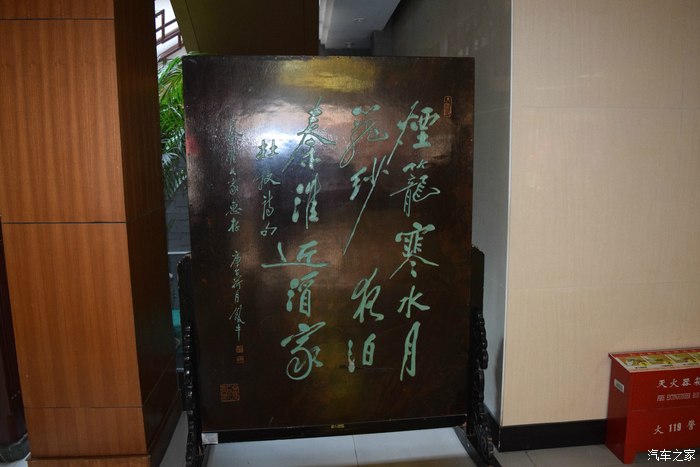 煙籠寒水月
籠紗夜泊
秦淮近酒家
杜牧詩句
灭火器箱
FIRE EXTINGUISHER BOX
火 119 警
汽车之家